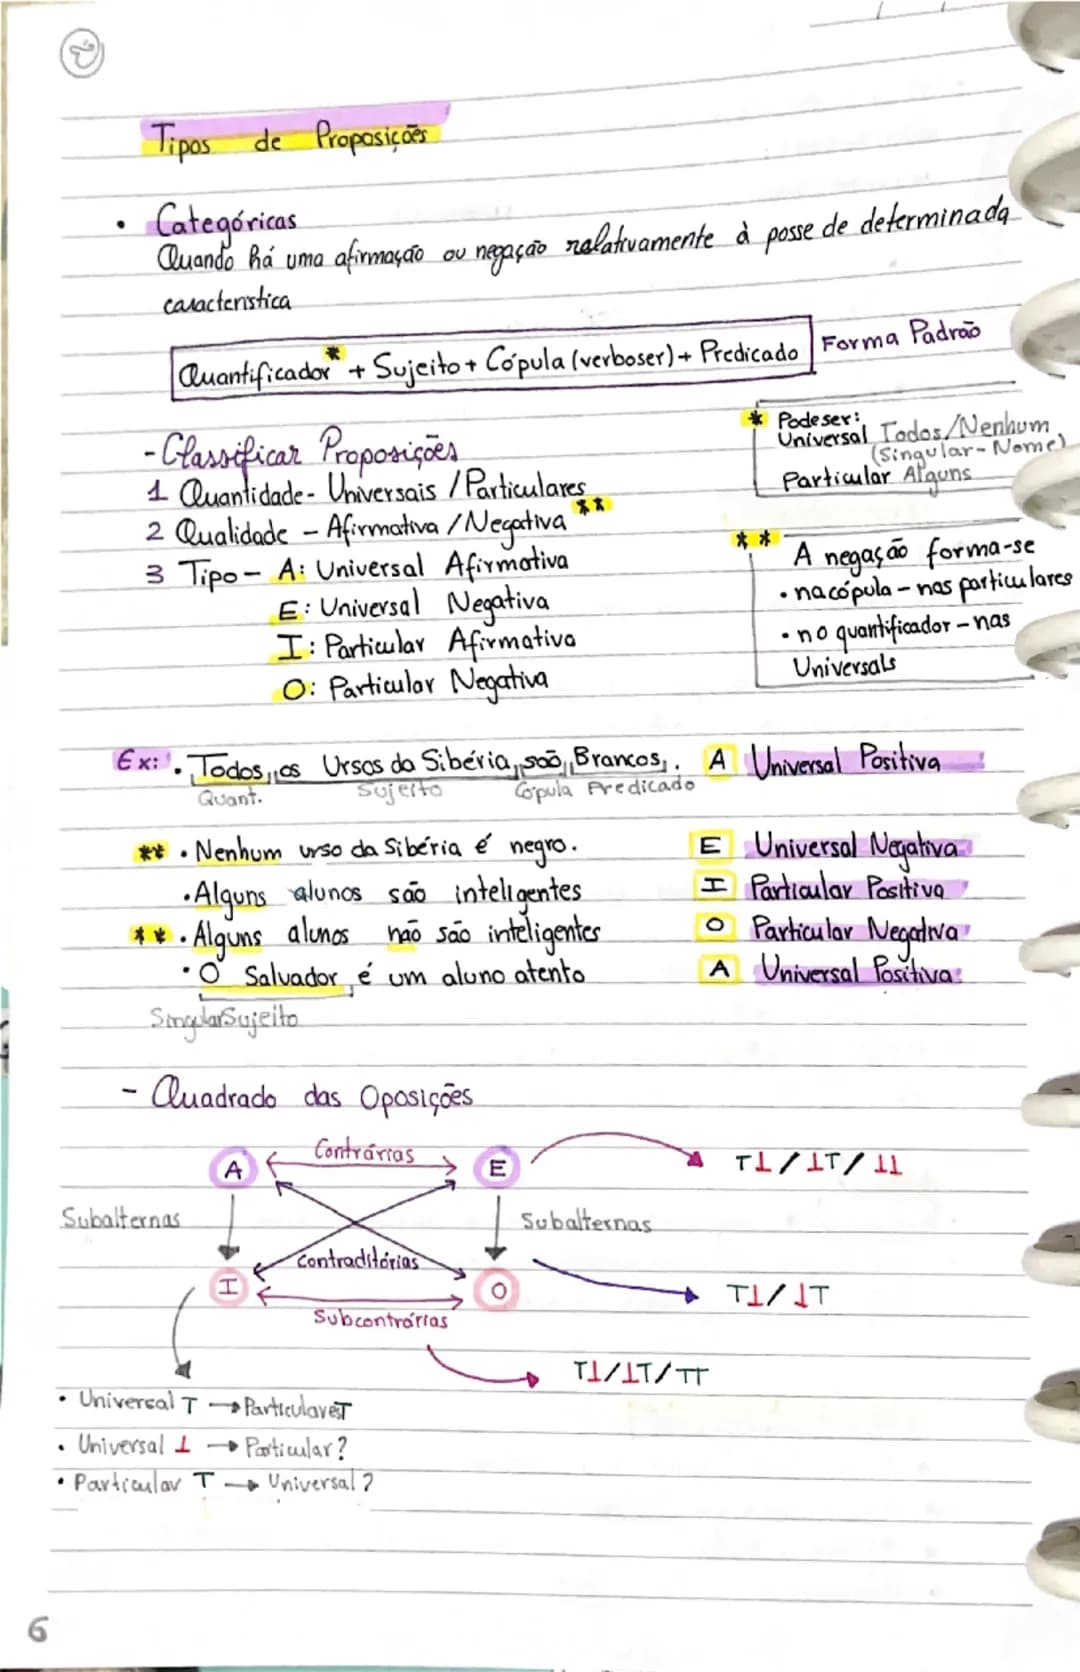 Tipos de Proposições
• Categóricas
Quando há uma afirmação ou negação relativamente à posse de determinada
característica
Quantificador* + Sujeito + Cópula (verbo ser) + Predicado
Forma Padrão
* Pode ser:
Universal Todos/Nenhum
(Singular - Nome)
Particular Alguns
- Classificar Proposições
1 Quantidade - Universais / Particulares
2 Qualidade - Afirmativa / Negativa **
3 Tipo - A: Universal Afirmativa
E: Universal Negativa
I: Particular Afirmativa
O: Particular Negativa
** A negação forma-se
• na cópula - nas particulares
• no quantificador - nas
Universais
Ex: • Todos os Ursos da Sibéria são Brancos. A Universal Positiva
Quant. Sujeito Cópula Predicado
** • Nenhum urso da Sibéria é negro. E Universal Negativa
• Alguns alunos são inteligentes I Particular Positiva
** • Alguns alunos não são inteligentes O Particular Negativa
• O Salvador é um aluno atento A Universal Positiva
Singular Sujeito
- Quadrado das Oposições
A Contrárias E T⊥/⊥T/⊥⊥
Subalternas Subalternas
Contraditórias
I O T⊥/⊥T
Subcontrárias
T⊥/⊥T/TT
• Universal T → Particulares T
• Universal ⊥ → Particular?
• Particular T → Universal?
6